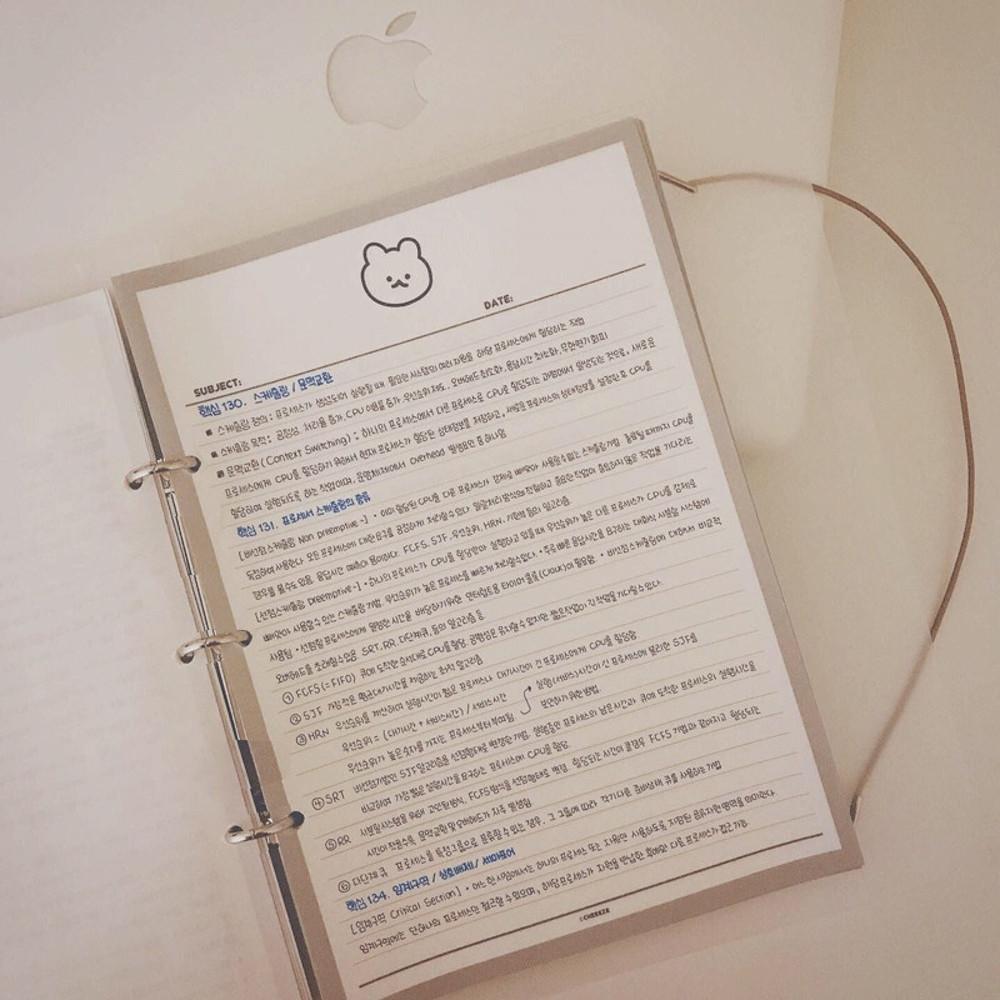 DATE:
SUBJECT:
핵심 130. 스케줄링 / 문맥교환
▪ 스케줄링 정의 : 프로세스가 생성되어 실행될 때 필요한 시스템의 여러 자원을 해당 프로세스에게 할당하는 작업
▪ 스케줄링 목적 : 공정성, 처리율 증가, CPU 이용률 증가, 우선순위 제도, 오버헤드 최소화, 응답시간 최소화, 무한연기 회피
▪ 문맥교환 (Context Switching) : 하나의 프로세스에서 다른 프로세스로 CPU가 할당되는 과정에서 발생되는 것으로, 새로운
프로세스에게 CPU를 할당하기 위해서 현재 프로세스가 할당된 상태정보를 저장하고, 새로운 프로세스의 상태정보를 설정한 후 CPU를
할당하여 실행되도록 하는 작업이며, 운영체제에서 overhead 발생요인 중 하나임
핵심 131. 프로세서 스케줄링의 종류
[비선점 스케줄링 Non preemptive~] • 이미 할당된 CPU를 다른 프로세스가 강제로 빼앗아 사용할 수 없는 스케줄링기법. 종료될 때까지 CPU를
독점하여 사용한다. 모든 프로세스에 대한 요구를 공정하게 처리할 수 있다. 일괄처리방식에 적합하고 중요한 작업이 중요하지 않은 작업을 기다리는
경우를 볼 수도 있음. 응답시간 예측이 용이하다. FCFS, SJF, 우선순위, HRN, 기한부 등의 알고리즘.
[선점스케줄링 preemptive~] • 하나의 프로세스가 CPU를 할당받아 실행하고 있을 때 우선순위가 높은 다른 프로세스가 CPU를 강제로
빼앗아 사용할 수 있는 스케줄링 기법. 우선순위가 높은 프로세스를 빠르게 처리할 수 있다. • 주로 빠른 응답시간을 요구하는 대화식 시분할 시스템에
사용됨 • 선점될 프로세스에게 일정한 시간을 배당하기 위한 인터럽트용 타이머 클록(Clock)이 필요함. • 비선점 스케줄링에 대해서 비교적
오버헤드를 초래할 수 있음. SRT, RR, 다단계큐, 등의 알고리즘 등
① FCFS(=FIFO) 큐에 도착한 순서대로 CPU를 할당. 공평성은 유지할 수 있지만 짧은 작업이 긴 작업을 기다릴 수 있다.
② SJF 가장 적은 평균대기시간을 제공하는 최적 알고리즘
③ HRN 우선순위를 계산하여 실행시간이 짧은 프로세스나 대기시간이 긴 프로세스에게 CPU를 할당함
우선순위 = (대기시간 + 서비스시간) / 서비스시간 실행(서비스)시간이 긴 프로세스에 불리한 SJF를
우선순위가 높은숫자를 가지는 프로세스부터 부여됨 보완하기 위한 방법.
④ SRT 비선점기법인 SJF 알고리즘을 선점형태로 변경한 기법. 실행중인 프로세스의 남은시간과 큐에 도착한 프로세스의 실행시간을
비교하여 가장 짧은 실행시간을 요구하는 프로세스에 CPU를 할당.
⑤ RR 시분할시스템을 위해 고안된 방식, FCFS 방식을 선점형태로 변경. 할당되는 시간이 클 경우 FCFS 기법과 같아지고 할당되는
시간이 작을수록 문맥교환 및 오버헤드가 자주 발생됨
⑥ 다단계 큐 프로세스를 특정그룹으로 분류할 수 있는 경우, 그 그룹에 따라 각기 다른 준비상태 큐를 사용하는 기법
핵심 134. 임계구역 / 상호배제 / 세마포어
[임계구역 Critical Section] • 어느 한 시점에서는 하나의 프로세스 또는 자원만 사용하도록 지정된 공유자원 영역을 의미한다.
임계구역에는 단 하나의 프로세스만 접근할 수 있으며, 해당 프로세스가 자원을 반납한 후에만 다른 프로세스가 접근 가능.
©CHEEKZE